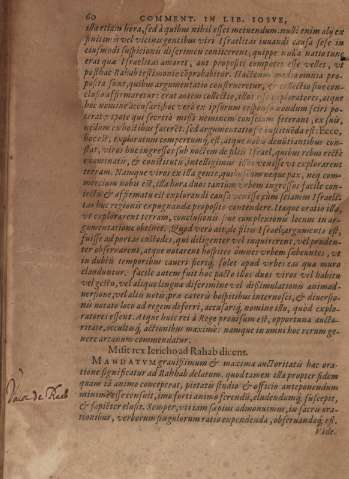 60 COMMENT. IN LIB. IOSVE,
illo etiam hora, sed à quibus nihil esset metuendum. nulli enim alij ex
vel vicinis gentibus viri Israelitas iuuandi causa sese in
eiusmodi suspicionis discrimen conijcerent, quippe nulla natio tunc
erat quæ Israelitas amaret, aut propositi compotes esse vellet, vt
posthac Rahab testimonio cōprobabitur. Hactenus media omnia pro-
posita sunt, quibus argumentatio construeretur, & collectio siue con-
clusio affirmaretur: erat autem collectio, illos esse exploratores, atque
hoc nomine accusari. hac verò ex ipsorum responso
erat: vtpote qui secretò missi neminem conscium fecerant, ex suis,
nedum ex hostibus facerēt. sed argumentatio sic instituēda est: Ecce,
hoc est, exploratum compertumq; est, atque nobis denuntiantibus con-
stat, viros huc ingressos sub noctem de filiis Israel, quibus rebus rectè
examinatis, & constitutis, intelligimus illos venisse vt explorarent
terram. Namque viros ex illa gente, quibuscum neque pax, neq; com-
mercium nobis est, illa hora duos tantum vrbem ingressos facile con-
iectu & affirmatu est explorandi causa venisse,
tas huc regioni expugnandæ proposito contendere. Itaque oratio illa,
vt explorarent terram, conclusionis siue complexionis locum in ar-
gumentatione obtinet. Quod verò ait, de filiis Israel, argumento est,
fuisse ad portas custodes, qui diligenter vel inquirerent, vel pruden-
ter obseruarent, atque notarent hospites omnes vrbem subeuntes, vt
in dubiis temporibus caueri solet apud vrbes eas quæ muro
clauduntur. facile autem fuit hoc pacto illos duos viros vel habitu
vel gestu, vel aliquo linguæ discrimine vel dissimulationis animad-
uersione, vel aliis notis, præ cæteris hospitibus internosci, & diuersio-
nis notato loco ad regem deferri, accusariq; nomine illo, quòd explo-
ratores essent. Atque huic rei à Rege prouisum est, opportuna aucto-
ritate, occultisq; actionibus maximè: namque in omni hoc rerum ge-
nere arcanum commendatur.
Misit rex Ierichoad Rahab dicens.
MANDATVM grauissimum & maximæ auctoritatis hac ora-
tione significatur ad Rahab delatum. quod tamen illa propter fidem
quam iā animo conceperat, pietatis studio & officio anteponendum
minimè esse censuit, imo forti animo ferendū, eludendumq; suscepit,
& sapiēter elusit. Semper, vt iam sæpius admonuimus, in sacris ora-
tionibus, verborum singulorum ratio expendenda, obseruandaq; est.
Vide.
de Raab